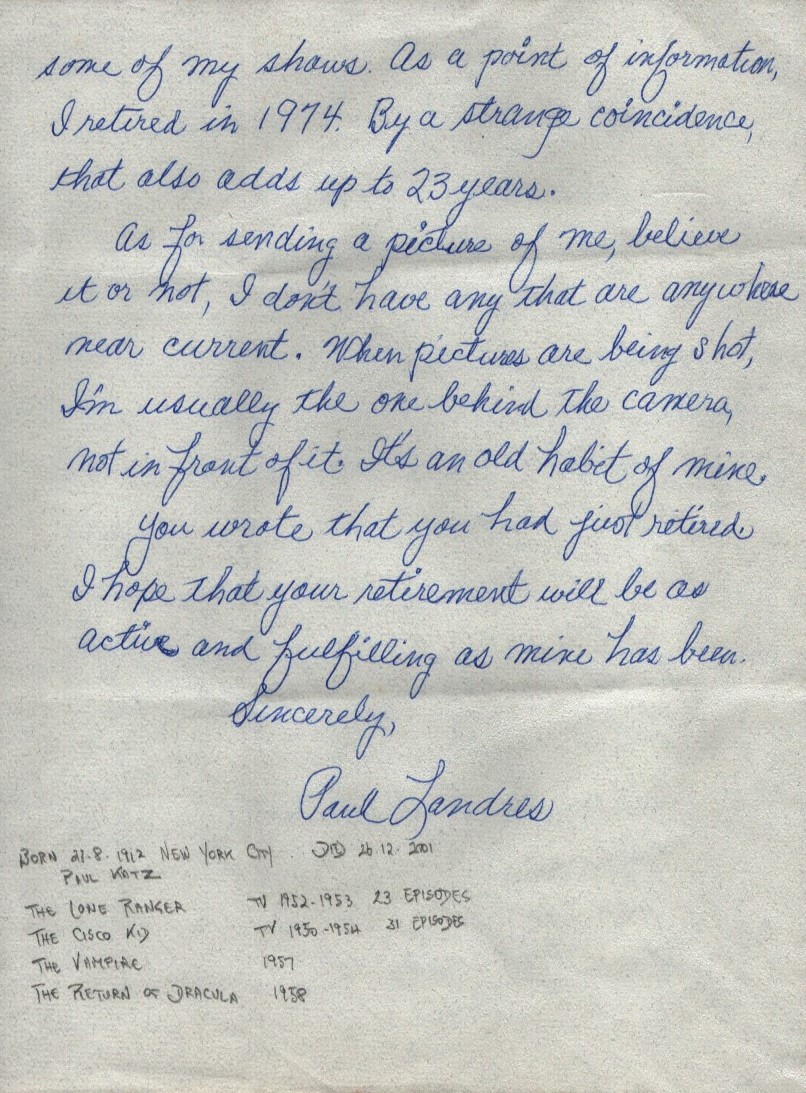 some of my shows. As a point of information,
I retired in 1974. By a strange coincidence,
that also adds up to 23 years.
As for sending a picture of me, believe
it or not, I don't have any that are anywhere
near current. When pictures are being shot,
I'm usually the one behind the camera,
not in front of it. It's an old habit of mine.
You wrote that you had just retired.
I hope that your retirement will be as
active and fulfilling as mine has been.
Sincerely,
Paul Landres
BORN 21-8-1912 NEW YORK CITY. DIED 26-12-2001
PAUL KATZ
THE LONE RANGER TV 1952-1953 23 EPISODES
THE CISCO KID TV 1950-1954 31 EPISODES
THE VAMPIRE 1957
THE RETURN OF DRACULA 1958